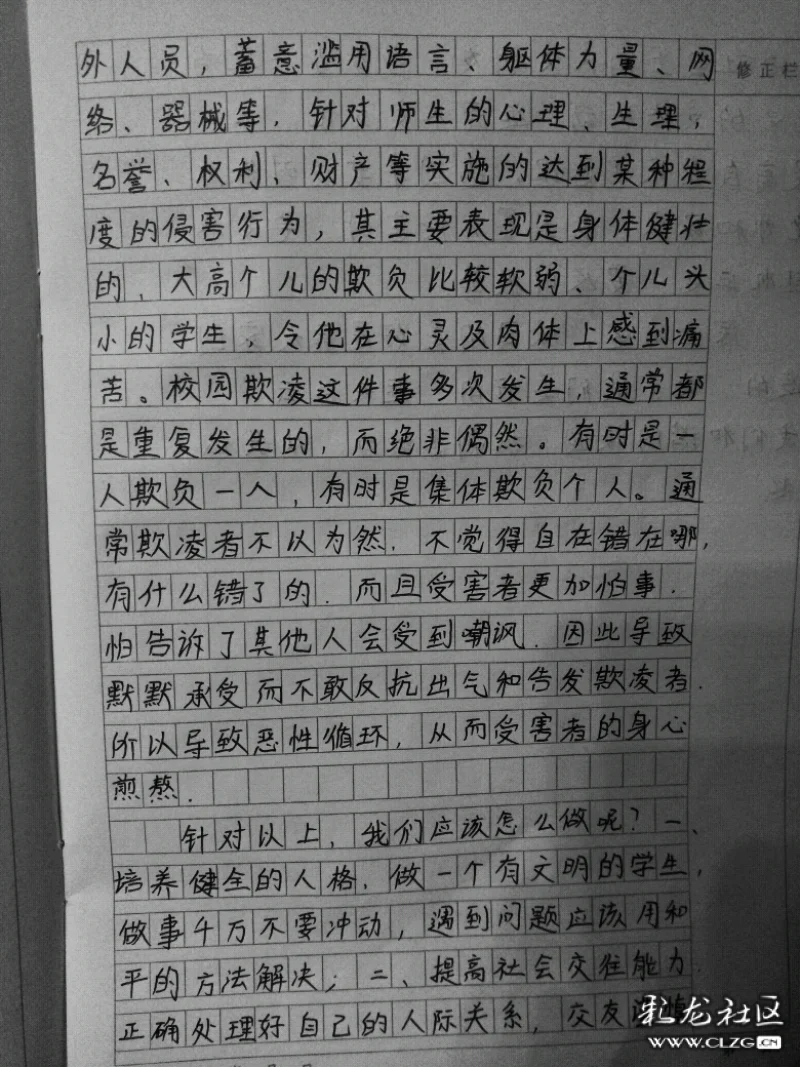 修正栏
外人员，蓄意滥用语言、躯体力量、网
络、器械等，针对师生的心理、生理，
名誉、权利、财产等实施的达到某种程
度的侵害行为，其主要表现是身体健壮
的、大高个儿的欺负比较软弱、个儿头
小的学生，令他在心灵及肉体上感到痛
苦。校园欺凌这件事多次发生，通常都
是重复发生的，而绝非偶然。有时是一
人欺负一人，有时是集体欺负个人。通
常欺凌者不以为然，不觉得自在错在哪，
有什么错了的．而且受害者更加怕事．
怕告诉了其他人会受到嘲讽．因此导致
默默承受而不敢反抗出气和告发欺凌者．
所以导致恶性循环，从而受害者的身心
煎熬．
针对以上，我们应该怎么做呢？一、
培养健全的人格，做一个有文明的学生，
做事千万不要冲动，遇到问题应该用和
平的方法解决；二、提高社会交往能力．
正确处理好自己的人际关系，交友
彩龙社区
WWW.CLZG.CN